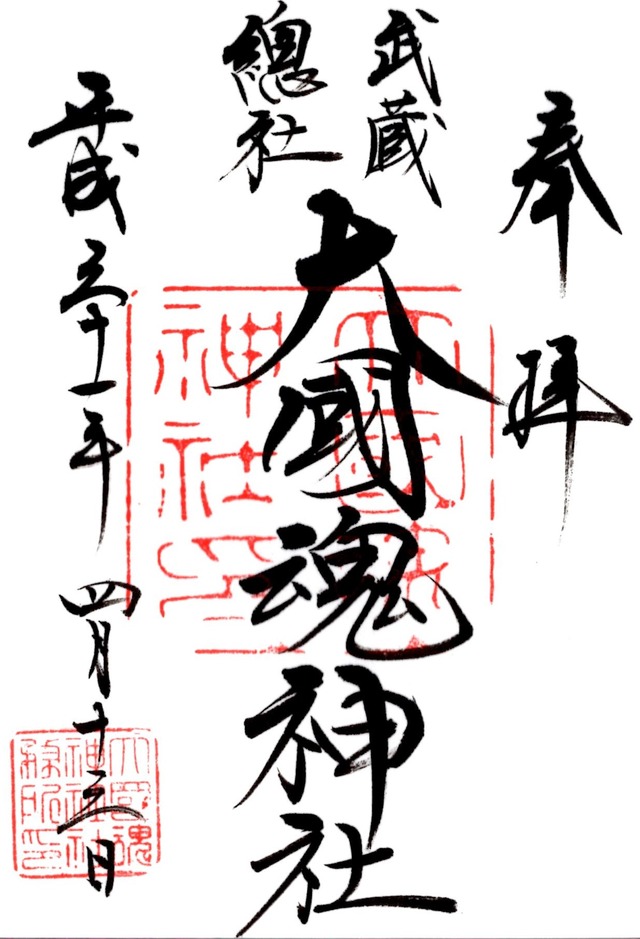 奉拝
武蔵
總社
大國魂神社
平成三十一年 四月十三日
大國魂
神社印
大國魂
神社神
務所印